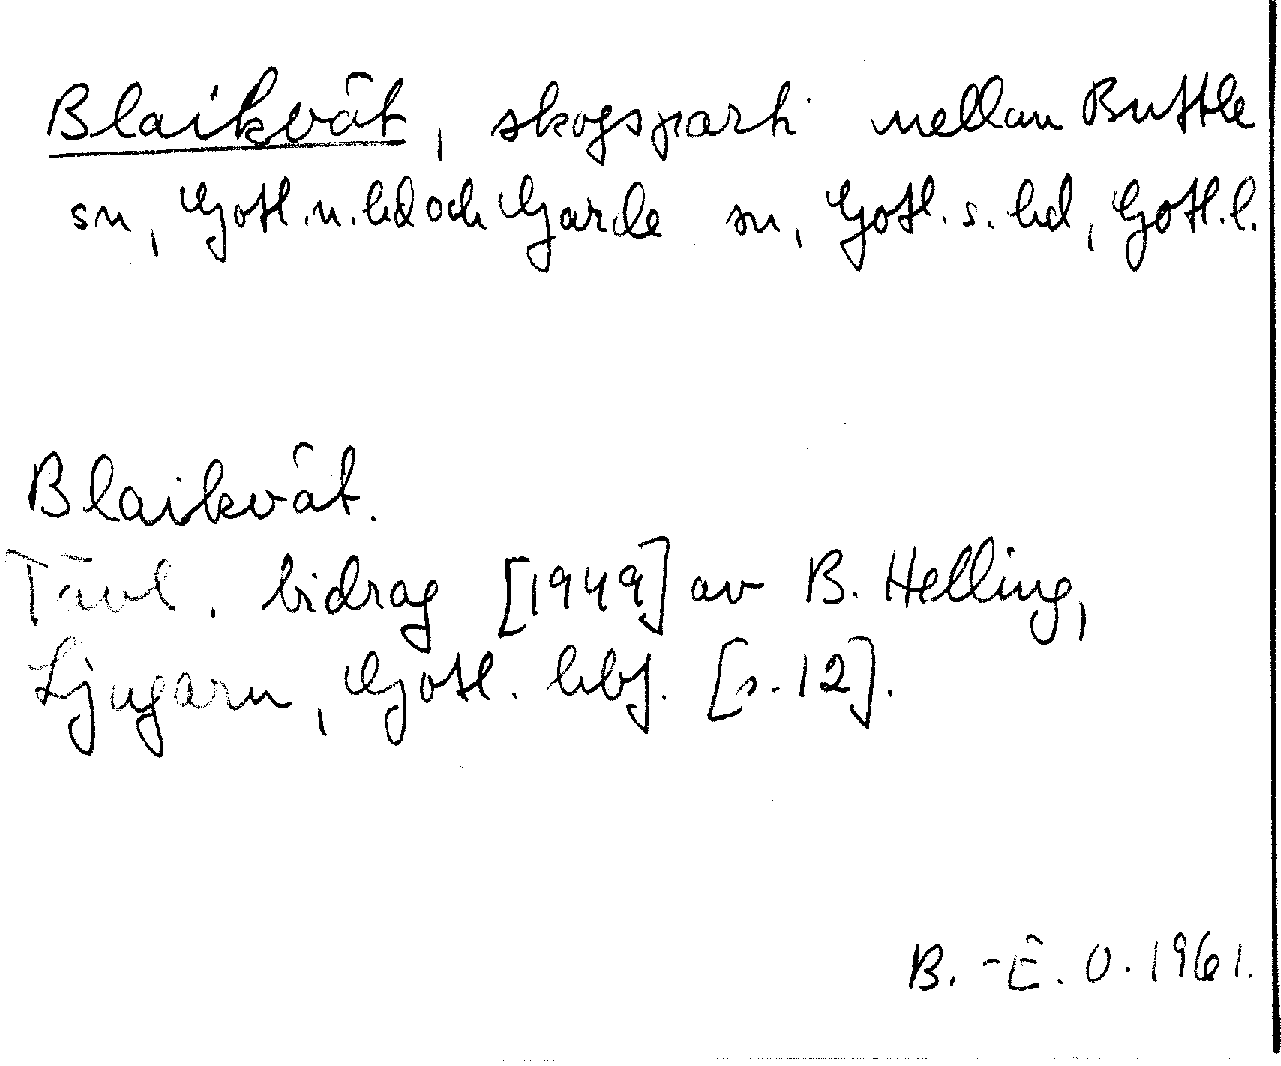 Blaikvät, skogsparti mellan Buttle
sn, Gotl. n. hd och Garde sn, Gotl. s. hd, Gotl. l.
Blaikvät.
Tävl. bidrag [1949] av B. Helling,
Ljugarn, Gotl. hbf. [s. 12].
B. -E. O. 1961.